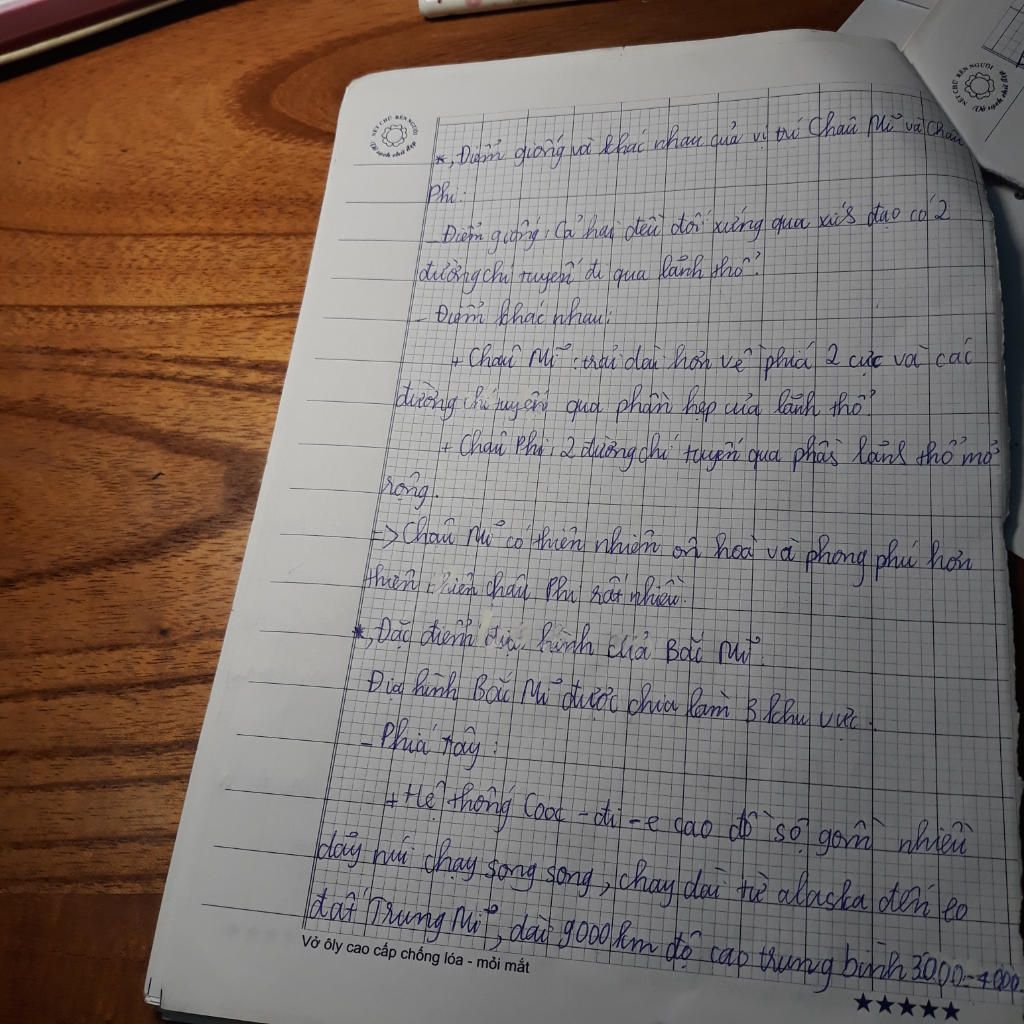 NÉT CHỮ NẾT NGƯỜI
*, Điểm giống và khác nhau của vị trí Châu Mĩ và Châu
Phi:
- Điểm giống: Cả hai đều đối xứng qua xích đạo có 2
đường chí tuyến đi qua lãnh thổ.
- Điểm khác nhau:
+ Châu Mĩ: trải dài hơn về phía 2 cực và các
đường chí tuyến qua phần hẹp của lãnh thổ.
+ Châu Phi: 2 đường chí tuyến qua phần lãnh thổ mở
rộng.
=> Châu Mĩ có thiên nhiên ôn hoà và phong phú hơn
thiên nhiên châu Phi rất nhiều.
*, Đặc điểm địa hình của Bắc Mĩ.
Địa hình Bắc Mĩ được chia làm 3 khu vực.
- Phía tây:
+ Hệ thống Cooc-đi-e cao đồ sộ gồm nhiều
dãy núi chạy song song, chạy dài từ alaska đến eo
đất Trung Mĩ, dài 9000km độ cap trung bình 3000-4000
Vở ôly cao cấp chống lóa - mỏi mắt